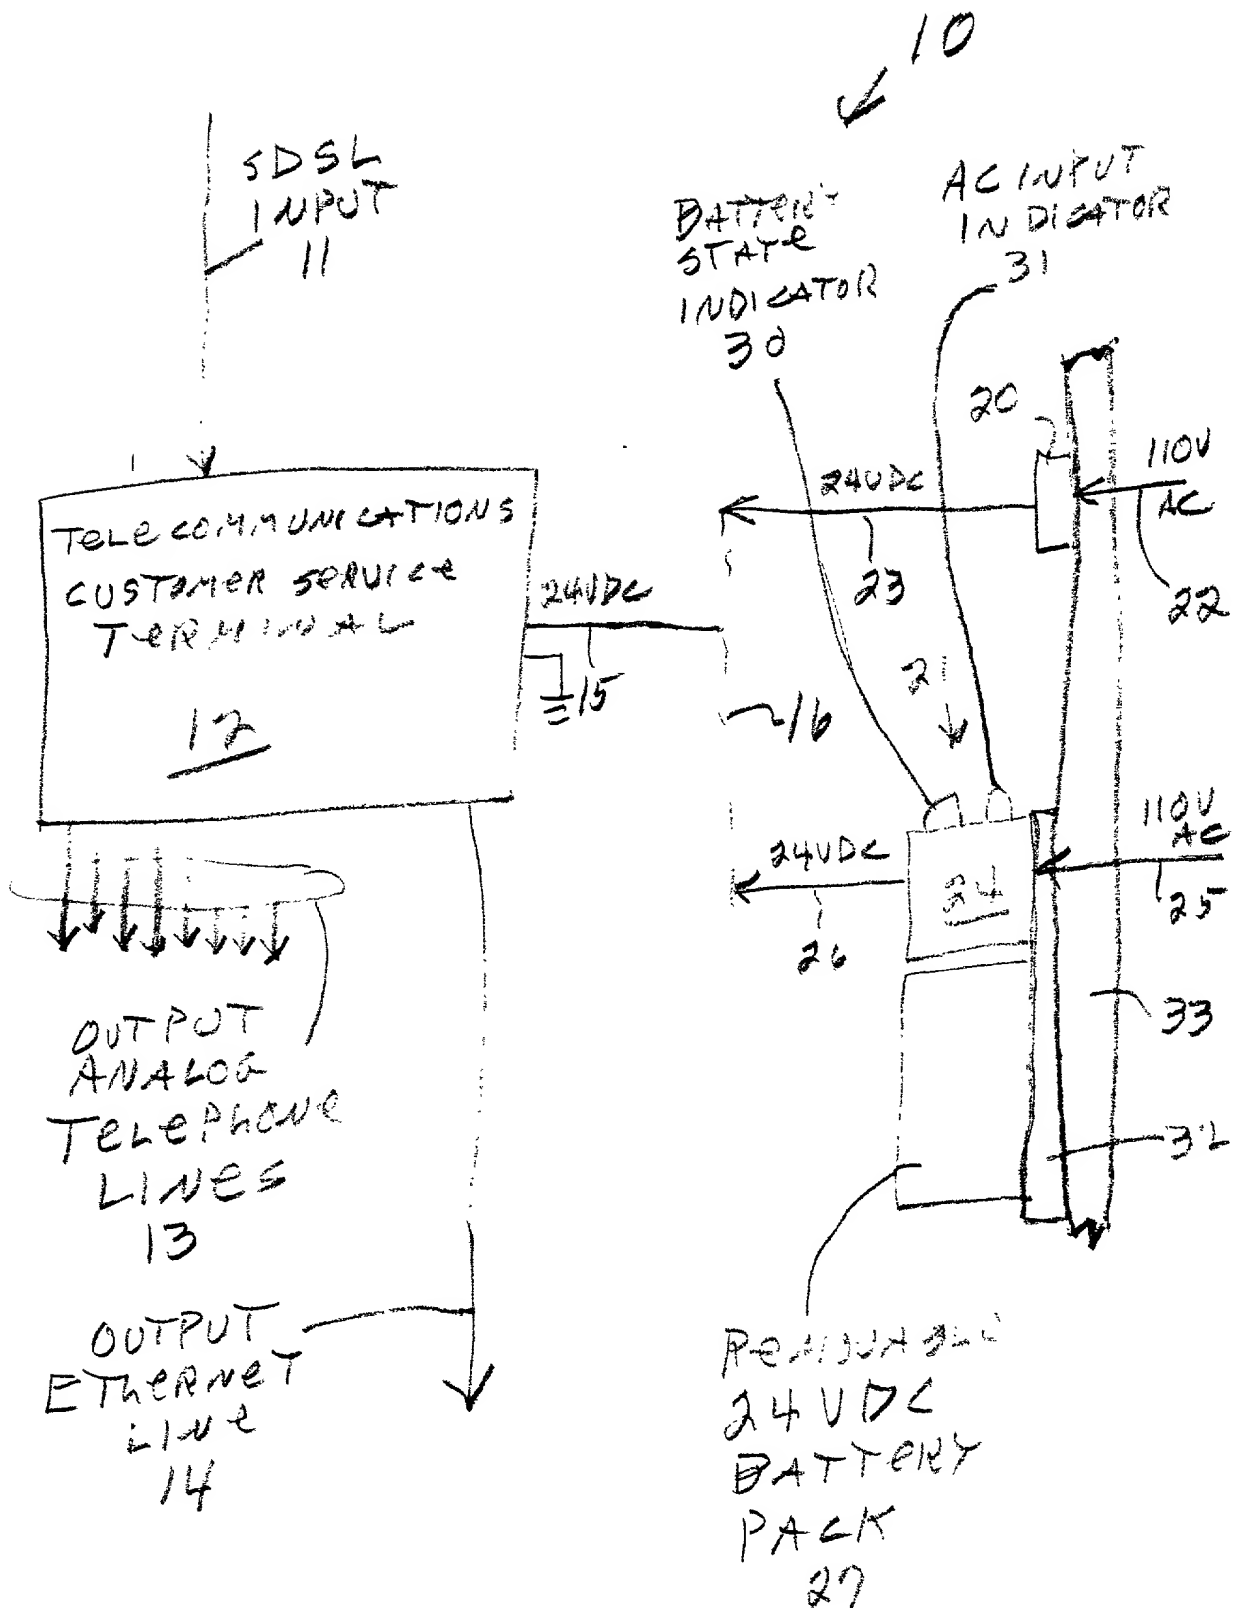 10
SDSL
INPUT
11
BATTERY
STATE
INDICATOR
30
AC INPUT
INDICATOR
31
20
110V
AC
22
24VDC
23
TELECOMMUNICATIONS
CUSTOMER SERVICE
TERMINAL
12
24VDC
15
16
21
110V
AC
25
24VDC
26
24
33
32
OUTPUT
ANALOG
TELEPHONE
LINES
13
OUTPUT
ETHERNET
LINE
14
REMOVABLE
24VDC
BATTERY
PACK
27